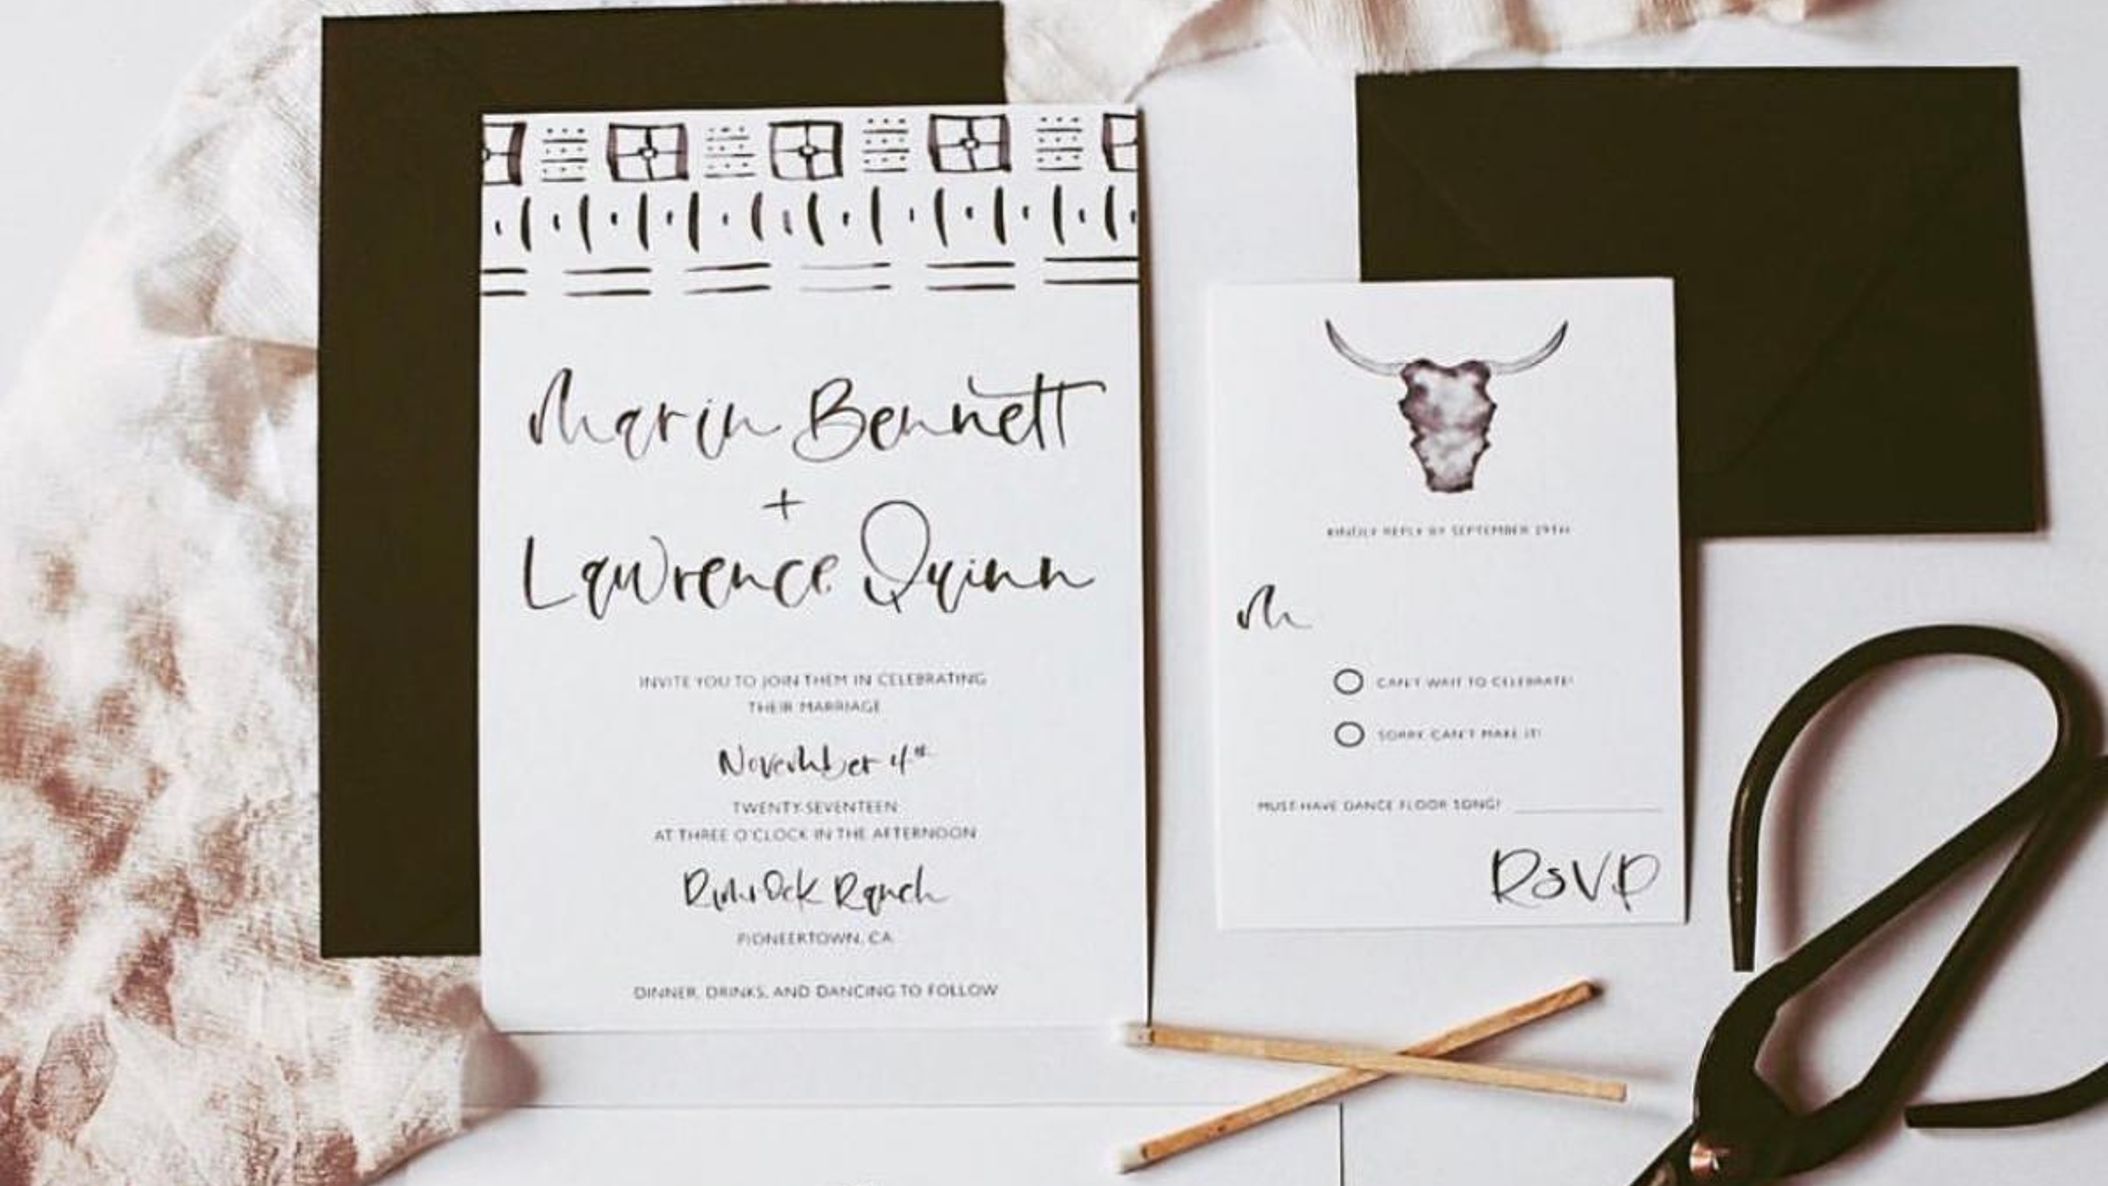 Marin Bennett
+
Lawrence Quinn
INVITE YOU TO JOIN THEM IN CELEBRATING
THEIR MARRIAGE
November 4th
TWENTY-SEVENTEEN
AT THREE O'CLOCK IN THE AFTERNOON
Rimrock Ranch
PIONEERTOWN, CA
DINNER, DRINKS, AND DANCING TO FOLLOW
KINDLY REPLY BY SEPTEMBER 29TH
M
CAN'T WAIT TO CELEBRATE!
SORRY CAN'T MAKE IT!
MUST-HAVE DANCE FLOOR SONG?
RSVP